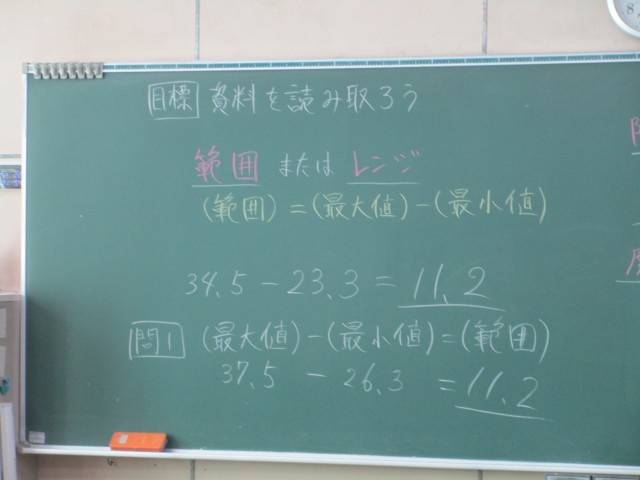 目標 資料を読み取ろう
範囲 または レンジ
(範囲)=(最大値)-(最小値)
34.5-23.3=11.2
問1 (最大値)-(最小値)=(範囲)
37.5 - 26.3 =11.2